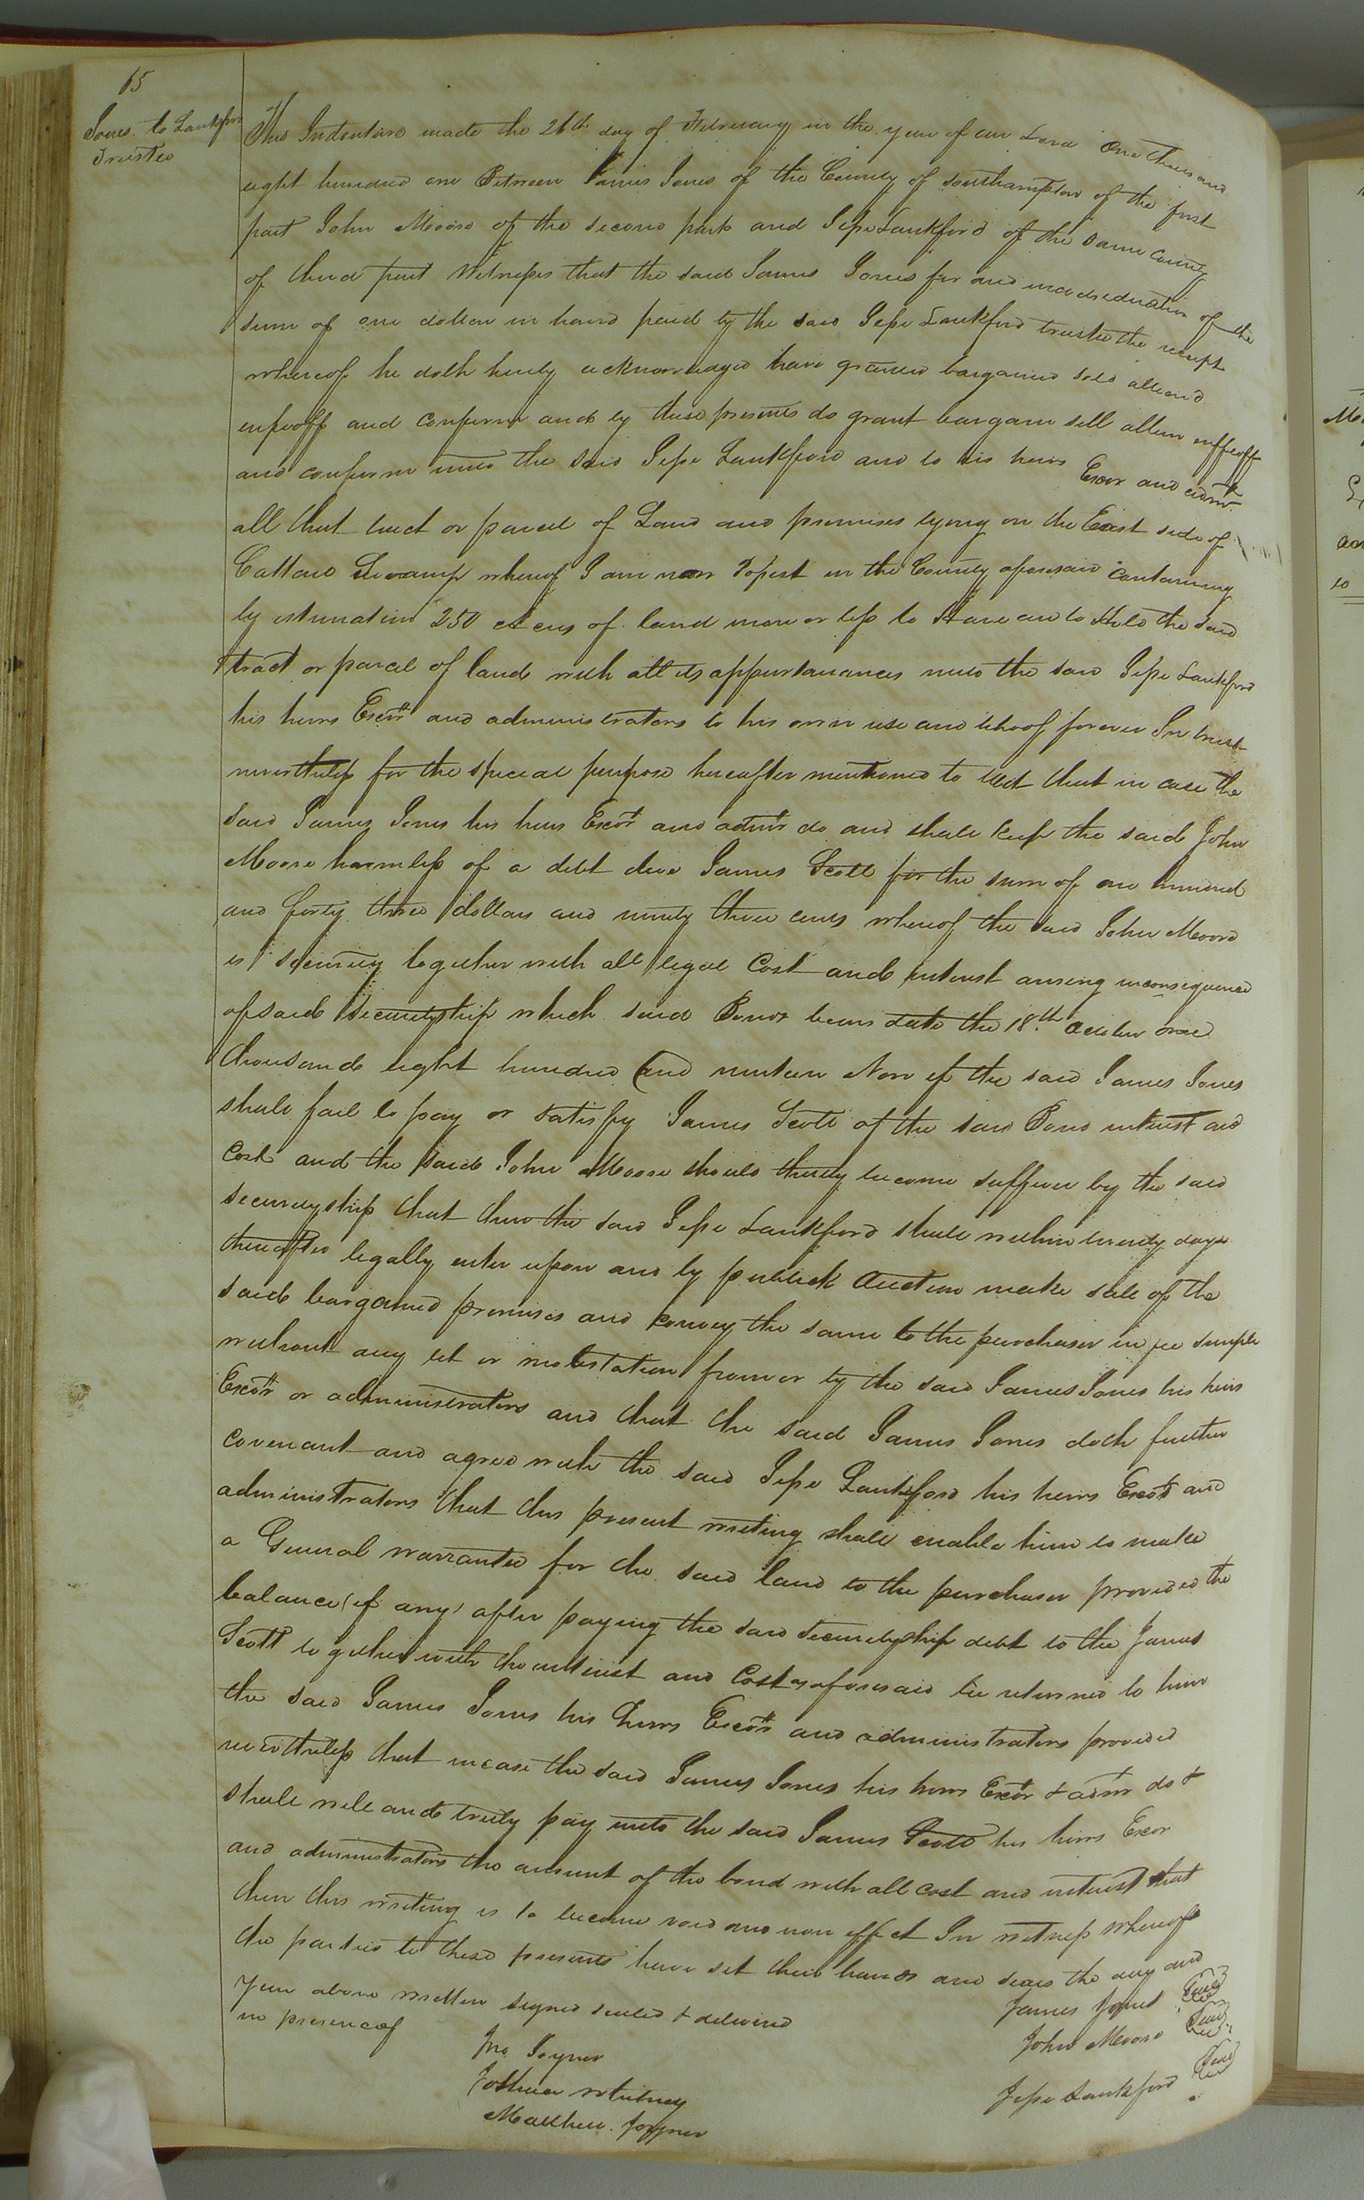 15
Jones to Lankford
Trustee
This Indenture made the 26th day of February in the year of our Lord One thousand
eight hundred one Between James Jones of the County of Southampton of the first
part John Moore of the second part and Jesse Lankford of the same County
of third part Witnesses that the said James Jones for and inconsideration of the
sum of one dollar in hand paid by the said Jesse Lankford trustee the receipt
whereof he doth hereby acknowledged have granted bargained sold aliend
enfeoff and confirm and by these presents do grant bargain sell alien enffeoff
and confirm unto the said Jesse Lankford and to his heirs Exor and admr
all that tract or parcel of Land and premises lying on the East side of
Swamp whereof I am now Posest in the County aforesaid containing
by estimation 250 acres of land more or less to Have and to Hold the said
tract or parcel of land with all its appurtanances unto the said Jesse Lankford
his heirs Exors and administrators to his own use and behoof forever In trust
nevertheless for the special purpose hereafter mentioned to that in case the
said James Jones his heirs Exors and admrs do and shall keep the said John
Moore harmless of a debt due James Scott for the sum of one hundred
and forty three dollars and ninety three cents whereof the said John Moore
is security together with all legal Cost and interest arising inconsequence
of said securityship which said Bond bears date the 18th October one
thousand eight hundred and nineteen Now if the said James Jones
shall fail to pay or satisfy James Scott of the said Bond interest and
Cost and the said John Moore should thereby become sufferer by the said
securityship that then the said Jesse Lankford shall within twenty days
thereafter legally enter upon and by publick Auction make sale of the
said bargained premises and convey the same to the purchaser in fee simple
without any let or molestation from or by the said James Jones his heirs
Exors or administrators and that the said James Jones doth further
covenant and agree with the said Jesse Lankford his heirs Exors and
administrators that this present writing shall enable him to make
a General warrantee for the said land to the purchaser provided the
balance (if any) after paying the said securityship debt to the James
Scott together with the interest and Cost as aforesaid be returned to him
the said James Jones his heirs Exors and administrators provided
nevertheless that incase the said James Jones his heirs Exor & admr do &
shall well and truly pay unto the said James Scott his heirs Exor
and administrators the amount of the bond with all cost and interest that
then this writing is to become void and non effect In witness whereof
the parties to these presents have set their hands and seals the day and
year above written signed sealed & delivered
in presence of
James Jones Seal
John Moore Seal
Jesse Lankford Seal
Jno Joyner
Joshua Whitney
Matthew Joyner